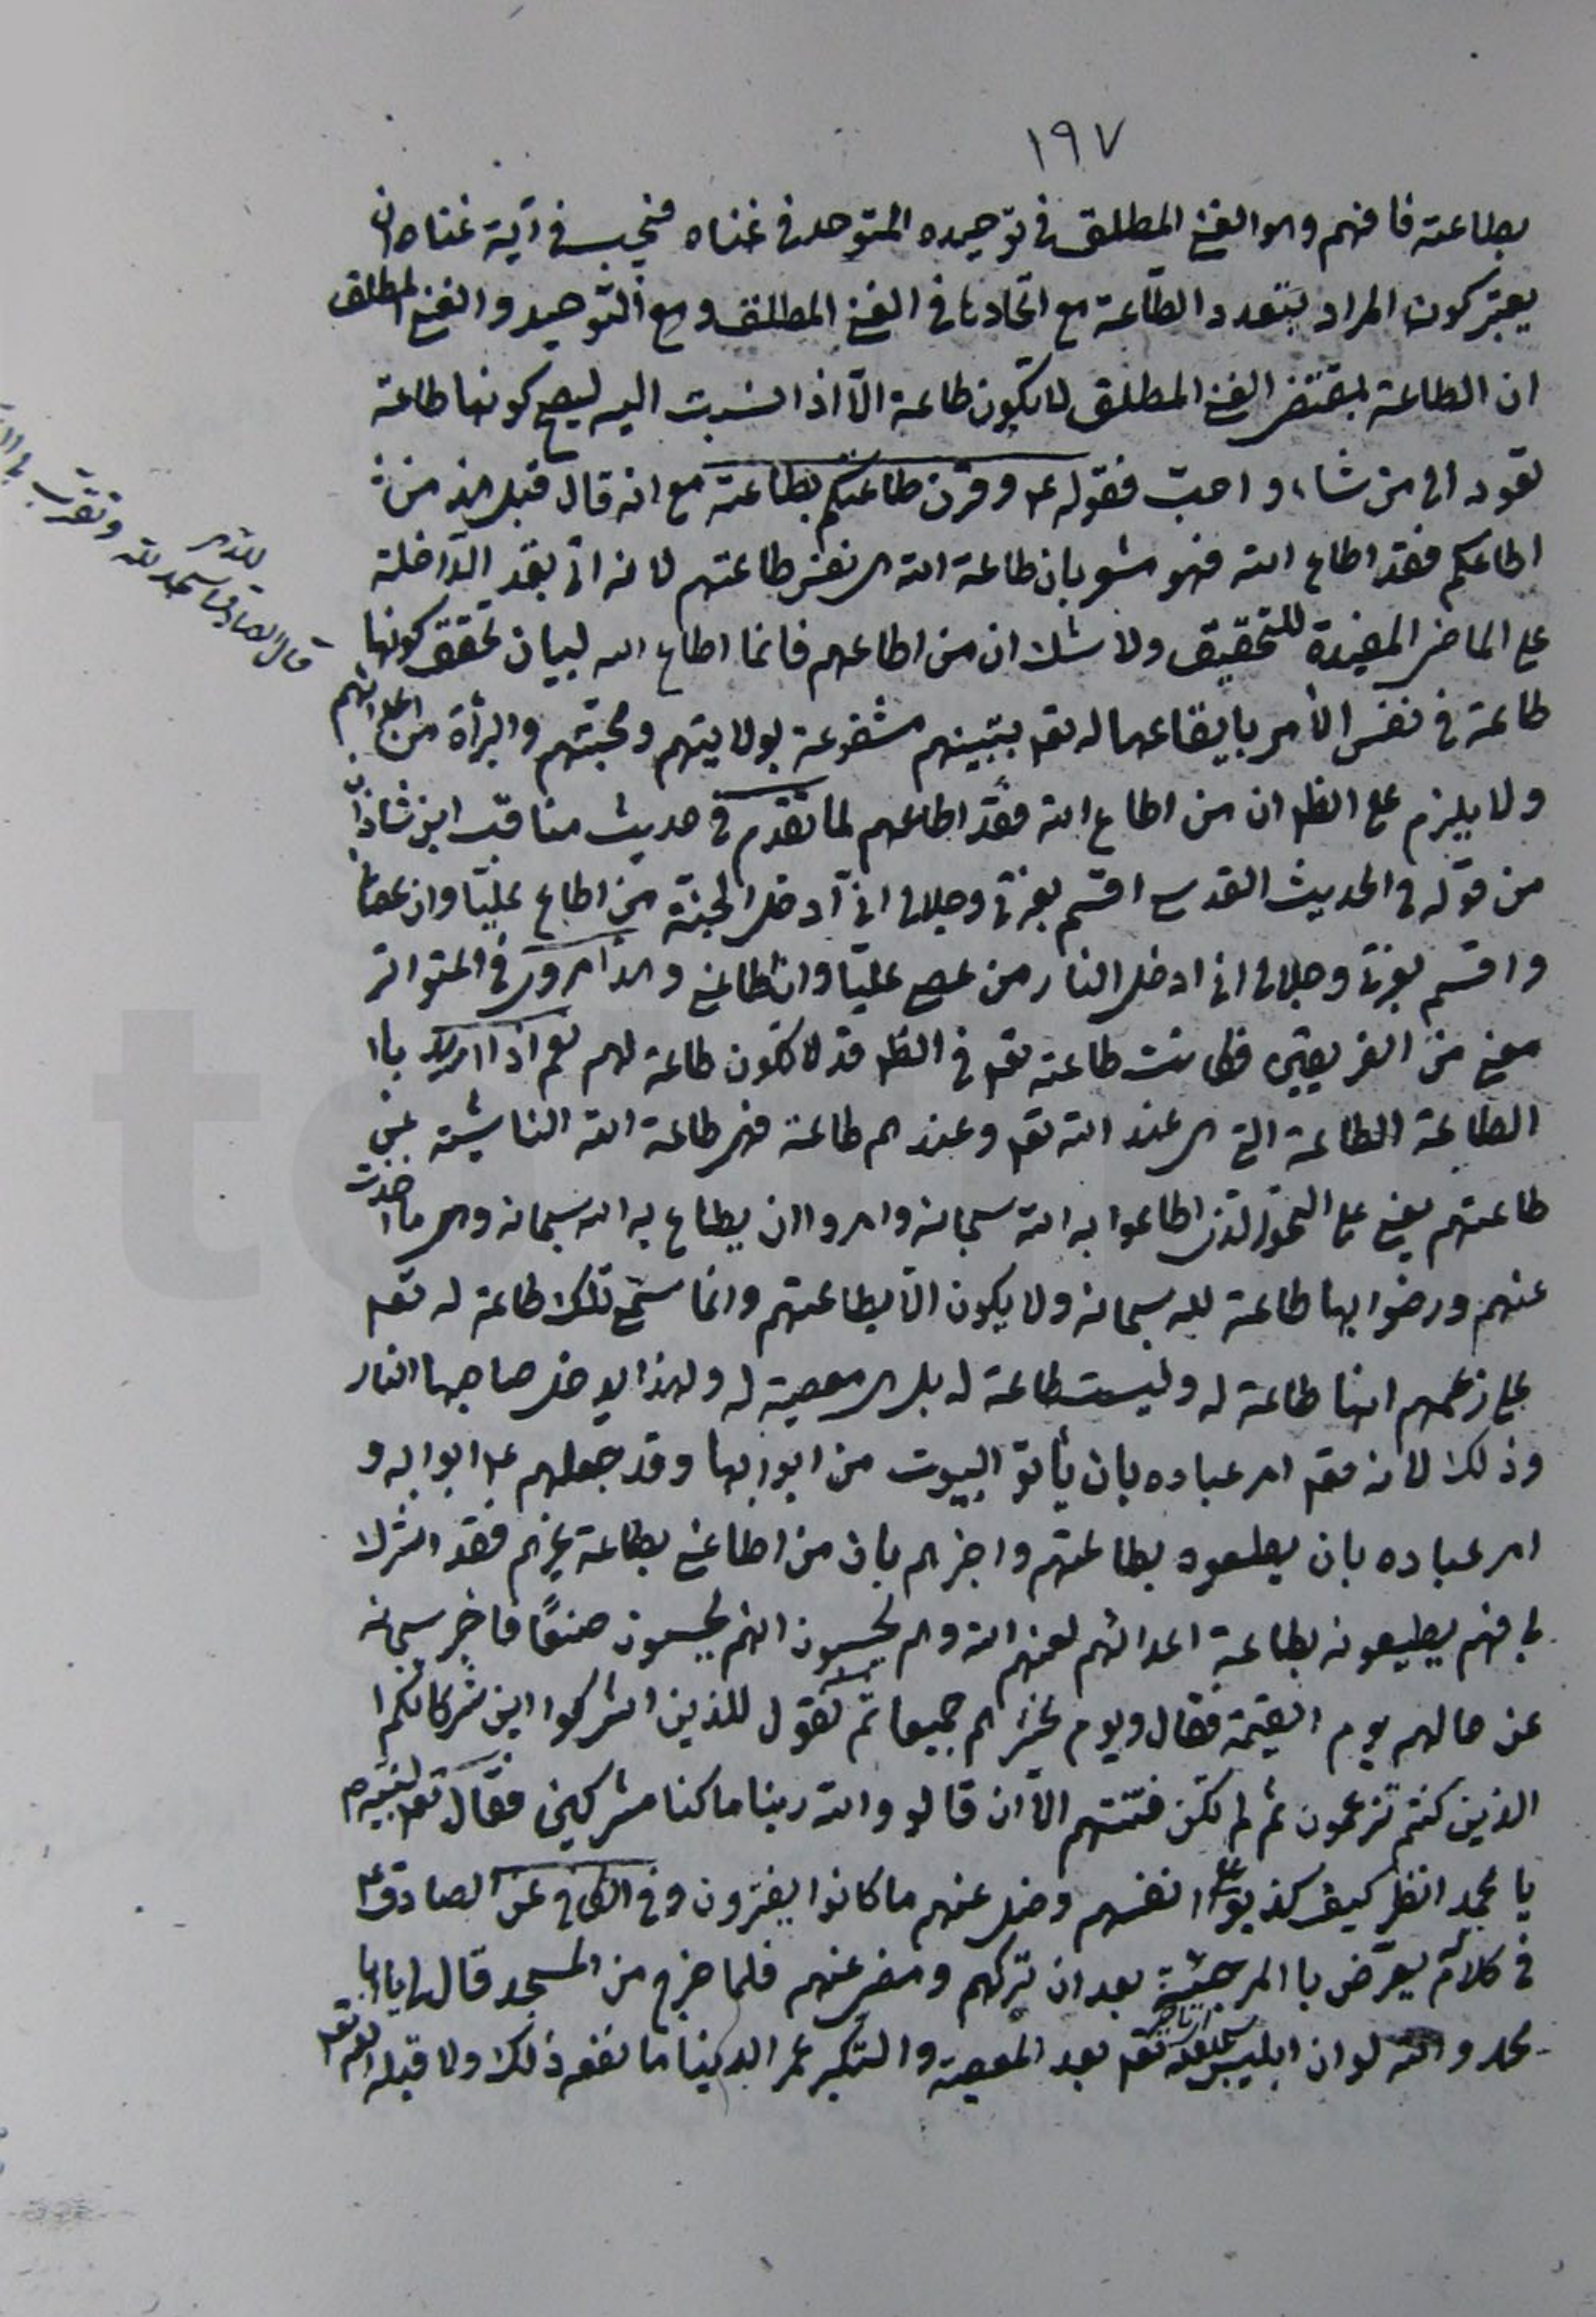 ١٩٧
بطاعته فافهم وهو الغنى المطلق فى توحيده المتوحد فى غناه فيجب فى آية غناه ان
يعتبر كون المراد بتعدد الطاعة مع اتحادها فى الغنى المطلق و مع التوحيد و الغنى المطلق
ان الطاعة بمقتضى الغنى المطلق لا تكون طاعة الّا اذا نسبت اليه ليصح كونها طاعة
تعود الى من شاء و احب فقوله ع و قرن طاعتكم بطاعته مع انه قال قبل هذا من
اطاعكم فقد اطاع الله فهو مشعر بان طاعة الله هى نفس طاعتهم لانه اتى بقد الداخلة
على الماضى المفيدة للتحقيق ولا شك ان من اطاعهم فانما اطاع الله لبيان تحقق كونها
طاعة فى نفس الأمر بايقاعها له تع بتبيينهم مشفوعة بولايتهم ومحبّتهم والبرأة من اعدائهم
ولا يلزم على الظ ان من اطاع الله فقد اطاعهم لما تقدم فى حديث مناقب ابن شاذان
من قوله فى الحديث القدسى اقسم بعزتى وجلالى انى ادخل الجنة من اطاع عليّا وان عصانى
واقسم بعزتى وجلالى انى ادخل النار من عصى عليّا وان اطاعنى وهذا مروى فى المتواتر
معنى من الفريقين فكانت طاعته تع فى الظ قد لا تكون طاعة لهم نعم اذا اريد با
الطاعة الطاعة التى هى عند الله تع وعندهم طاعة فهى طاعة الله الناشية عن
طاعتهم يعنى على النحو الذى اطاعوا به الله سبحانه وامروا ان يطاع به الله سبحانه وهى ما اخذت
عنهم ورضوا بها طاعة لله سبحانه ولا يكون الّا بطاعتهم وانما سمّى تلك طاعة له تع
على زعمهم انها طاعة له وليست طاعة له بل هى معصية له ولهذا يدخل صاحبها النار
وذلك لانه تع امر عباده بان يأتوا البيوت من ابوابها وقد جعلهم ع ابوابه و
امر عباده بان يطيعوه بطاعتهم واخبرهم بان من اطاعنى بطاعة غيرهم فقد اشرك
بى فهم يطيعونه بطاعة اعدائهم لعنهم الله وهم يحسبون انهم يحسنون صنعًا فاخبر سبحانه
عن حالهم يوم القيمة فقال ويوم نحشرهم جميعا ثم نقول للذين اشركوا اين شركائكم
الذين كنتم تزعمون ثم لم تكن فتنتهم الّا ان قالوا والله ربنا ما كنا مشركين فقال تع لنبيه ص
يا محمد انظر كيف كذبوا على انفسهم وضل عنهم ما كانوا يفترون وفى الكافى عن الصادق ع
فى كلام يعرّض بالمرجئة بعد ان تركهم ومضى عنهم فلما خرج من المسجد قال لى يا ابا
محمد والله لو ان ابليس سجد لله تع بعد المعصية والتكبر عمر الدنيا ما نفعه ذلك ولا قبله الله تع
قال الصادق سجد لله وتقرب